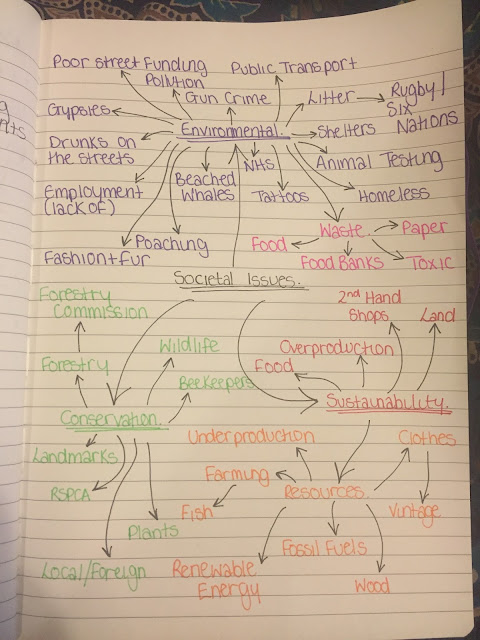 Poor street Funding
Pollution
Public Transport
Gun Crime
Litter
Rugby/
Six
Nations
Gypsies
Environmental.
Shelters
Drunks on
the streets
NHS
Animal Testing
Beached
Whales
Employment
(lack of)
Tattoos
Homeless
Waste.
Paper
Poaching
Food
Fashion + Fur
Food Banks
Toxic
Societal Issues.
Forestry
Commission
2nd Hand
Shops
Land
Wildlife
Overproduction
Forestry
Food
Beekeepers
Sustainability.
Conservation.
Underproduction
Clothes
Landmarks
Farming
RSPCA
Resources.
Fish
Vintage
Plants
Fossil Fuels
Local/Foreign
Renewable
Energy
Wood